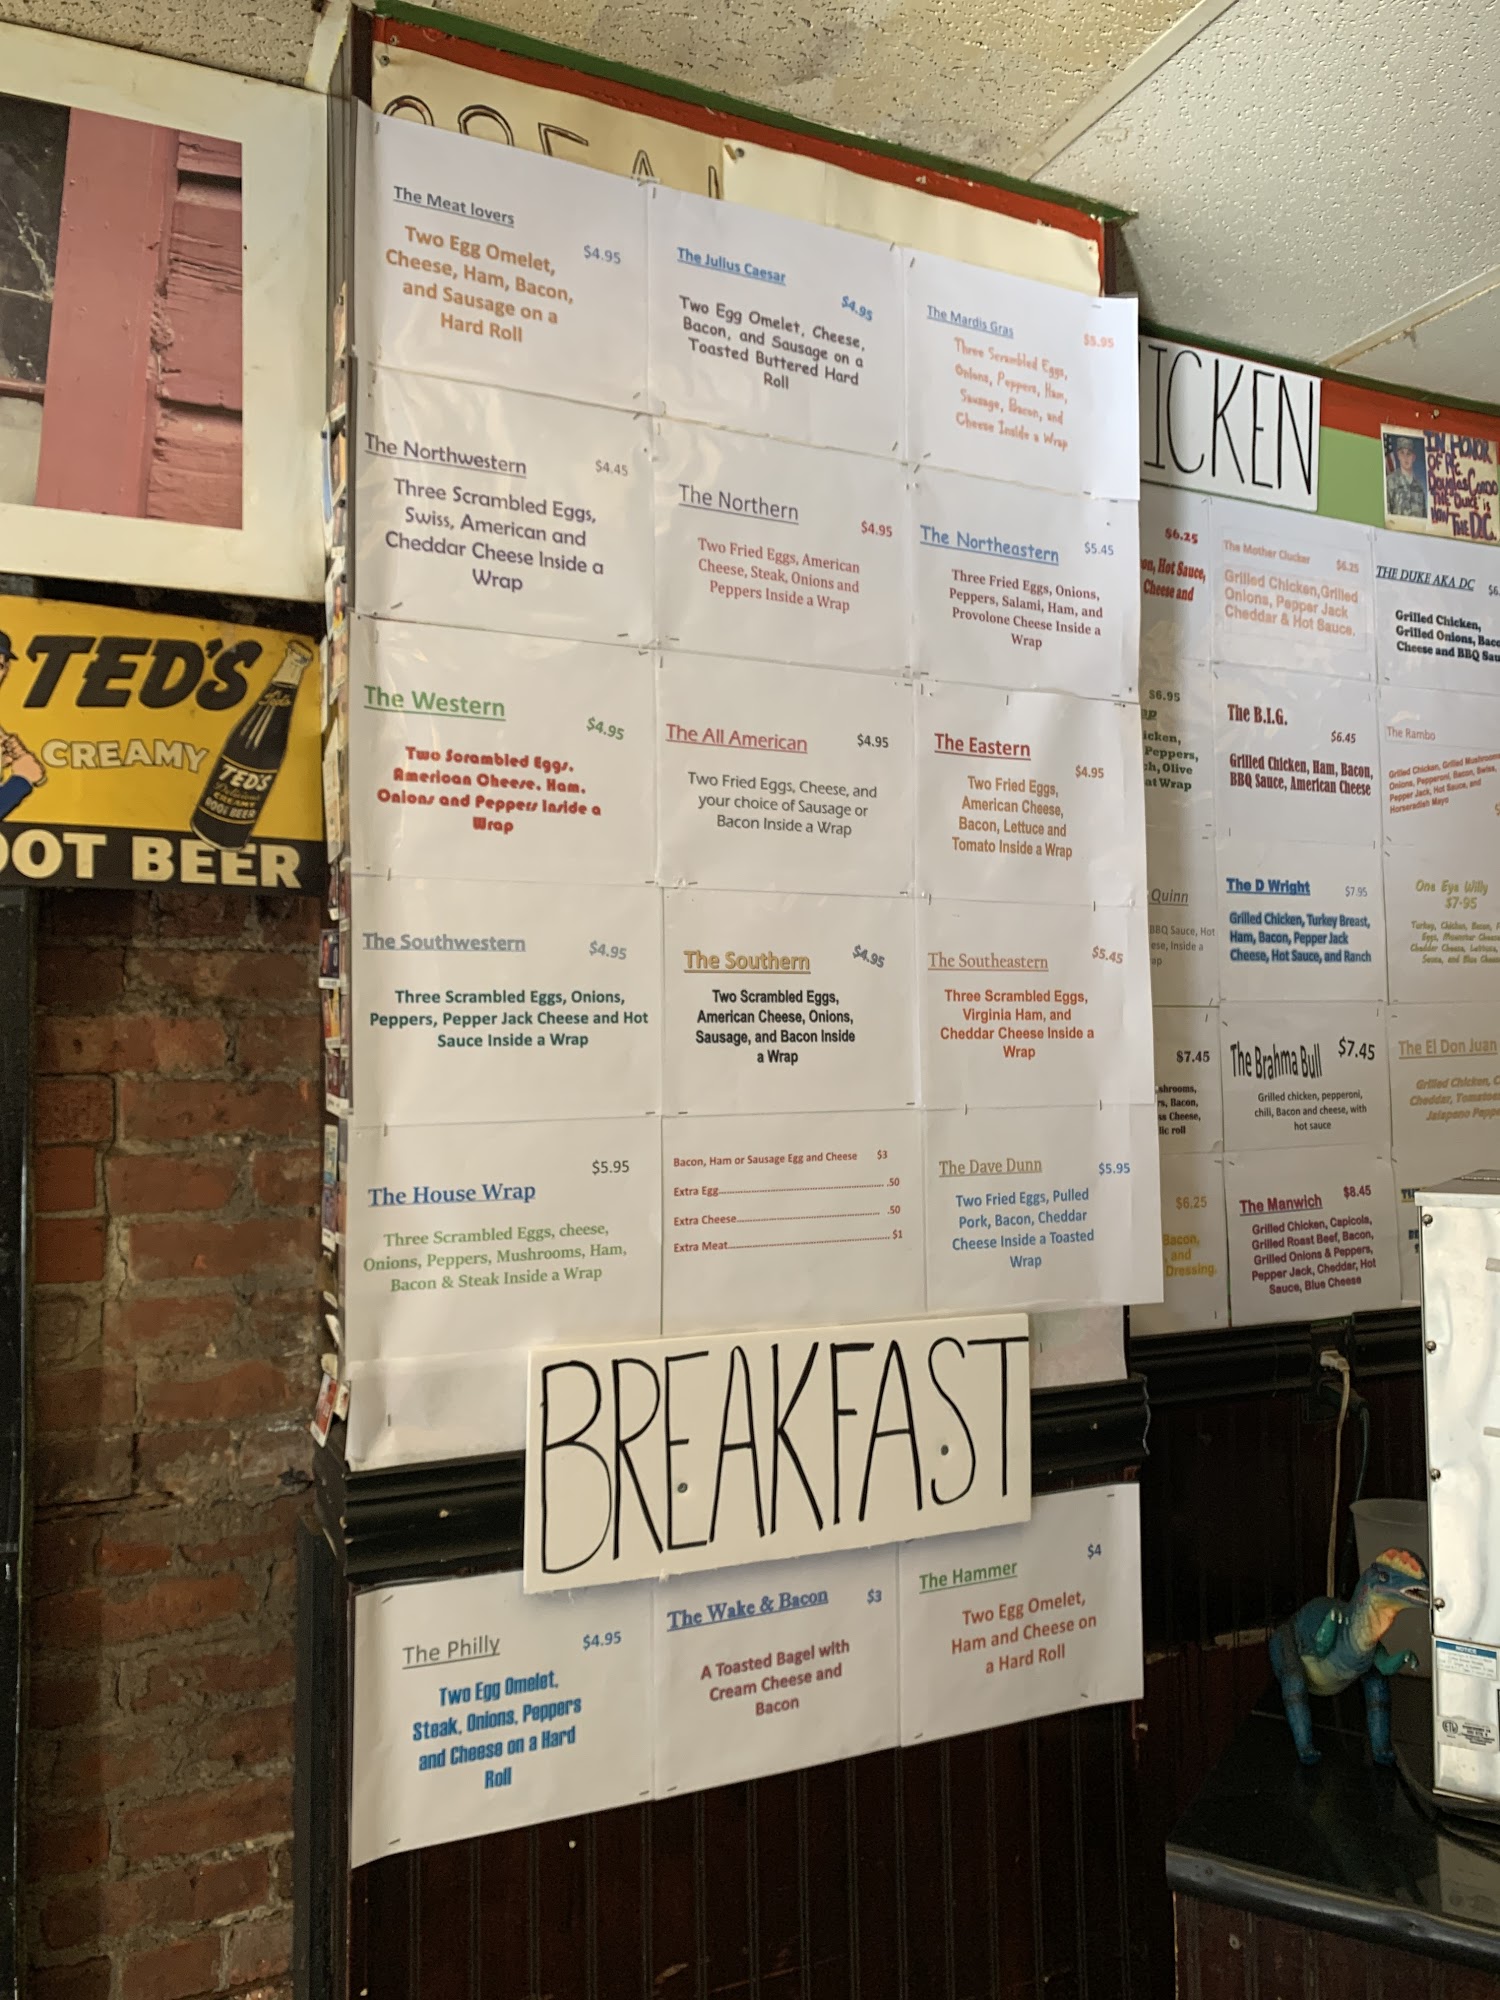 The Meat lovers
$4.95
Two Egg Omelet,
Cheese, Ham, Bacon,
and Sausage on a
Hard Roll
The Julius Caesar
$4.95
Two Egg Omelet, Cheese,
Bacon, and Sausage on a
Toasted Buttered Hard
Roll
The Mardis Gras
$5.95
Three Scrambled Eggs,
Onions, Peppers, Ham,
Sausage, Bacon, and
Cheese Inside a Wrap
The Northwestern
$4.45
Three Scrambled Eggs,
Swiss, American and
Cheddar Cheese Inside a
Wrap
The Northern
$4.95
Two Fried Eggs, American
Cheese, Steak, Onions and
Peppers Inside a Wrap
The Northeastern
$5.45
Three Fried Eggs, Onions,
Peppers, Salami, Ham, and
Provolone Cheese Inside a
Wrap
The Western
$4.95
Two Scrambled Eggs,
American Cheese, Ham,
Onions and Peppers Inside a
Wrap
The All American
$4.95
Two Fried Eggs, Cheese, and
your choice of Sausage or
Bacon Inside a Wrap
The Eastern
$4.95
Two Fried Eggs,
American Cheese,
Bacon, Lettuce and
Tomato Inside a Wrap
The Southwestern
$4.95
Three Scrambled Eggs, Onions,
Peppers, Pepper Jack Cheese and Hot
Sauce Inside a Wrap
The Southern
$4.95
Two Scrambled Eggs,
American Cheese, Onions,
Sausage, and Bacon Inside
a Wrap
The Southeastern
$5.45
Three Scrambled Eggs,
Virginia Ham, and
Cheddar Cheese Inside a
Wrap
The House Wrap
$5.95
Three Scrambled Eggs, cheese,
Onions, Peppers, Mushrooms, Ham,
Bacon & Steak Inside a Wrap
Bacon, Ham or Sausage Egg and Cheese $3
Extra Egg .50
Extra Cheese .50
Extra Meat $1
The Dave Dunn
$5.95
Two Fried Eggs, Pulled
Pork, Bacon, Cheddar
Cheese Inside a Toasted
Wrap
BREAKFAST
The Philly
$4.95
Two Egg Omelet,
Steak, Onions, Peppers
and Cheese on a Hard
Roll
The Wake & Bacon
$3
A Toasted Bagel with
Cream Cheese and
Bacon
The Hammer
$4
Two Egg Omelet,
Ham and Cheese on
a Hard Roll
TED'S
CREAMY
OOT BEER
TED'S
ROOT BEER
ICKEN
IN HONOR
OF
Douglas
THE DUKE IS
NOW THE D.C.
$6.25
on, Hot Sauce,
Cheese and
The Mother Clucker
$6.25
Grilled Chicken,Grilled
Onions, Pepper Jack
Cheddar & Hot Sauce.
THE DUKE AKA DC
$6.
Grilled Chicken,
Grilled Onions, Baco
Cheese and BBQ Sau
$6.95
icken,
Peppers,
h, Olive
at Wrap
The B.I.G.
$6.45
Grilled Chicken, Ham, Bacon,
BBQ Sauce, American Cheese
The Rambo
Grilled Chicken, Grilled Mushroom
Onions, Pepperoni, Bacon, Swiss,
Pepper Jack, Hot Sauce, and
Horseradish Mayo
Quinn
BBQ Sauce, Hot
ese, Inside a
ap
The D Wright
$7.95
Grilled Chicken, Turkey Breast,
Ham, Bacon, Pepper Jack
Cheese, Hot Sauce, and Ranch
One Eye Willy
$7.95
Turkey, Chicken, Bacon,
Eggs, Muenster Cheese
Cheddar Cheese, Lettuce,
Sauce, and Blue Chee
$7.45
shrooms,
rs, Bacon,
ss Cheese,
lic roll
The Brahma Bull
$7.45
Grilled chicken, pepperoni,
chili, Bacon and cheese, with
hot sauce
The El Don Juan
Grilled Chicken, C
Cheddar, Tomatoe
Jalapeno Peppe
$6.25
Bacon,
and
Dressing.
The Manwich
$8.45
Grilled Chicken, Capicola,
Grilled Roast Beef, Bacon,
Grilled Onions & Peppers,
Pepper Jack, Cheddar, Hot
Sauce, Blue Cheese
NOTICE